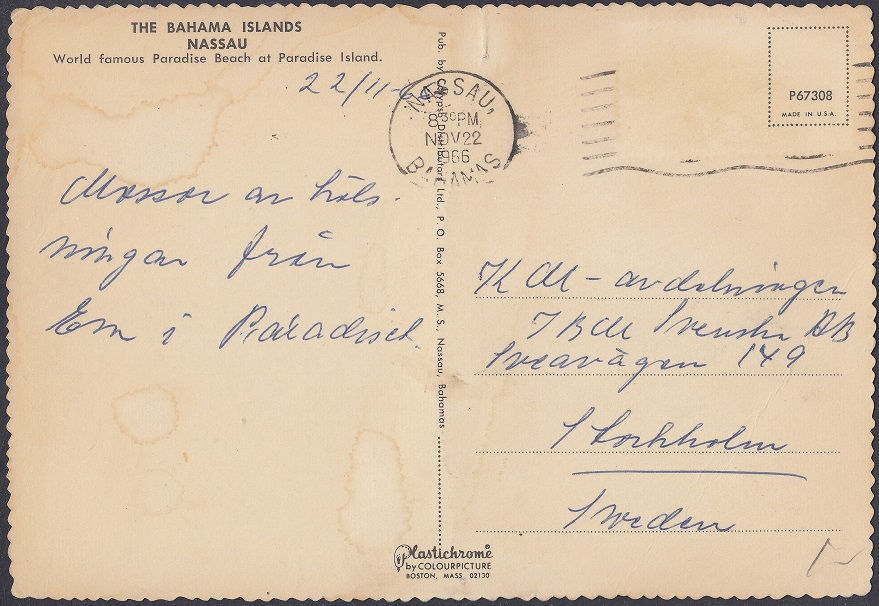 THE BAHAMA ISLANDS
NASSAU
World famous Paradise Beach at Paradise Island.
22/11-66
Massor av häls-
ningar från
Em i Paradiset.
Pub. by Calypso Distributors Ltd., P. O. Box 5668, M. S., Nassau, Bahamas
NASSAU,
8 30 PM
NOV 22
1966
BAHAMAS
P67308
MADE IN U.S.A.
KM-avdelningen
IBM Svenska AB
Sveavägen 149
Stockholm
Sweden
Plastichrome
by COLOURPICTURE
BOSTON, MASS. 02130